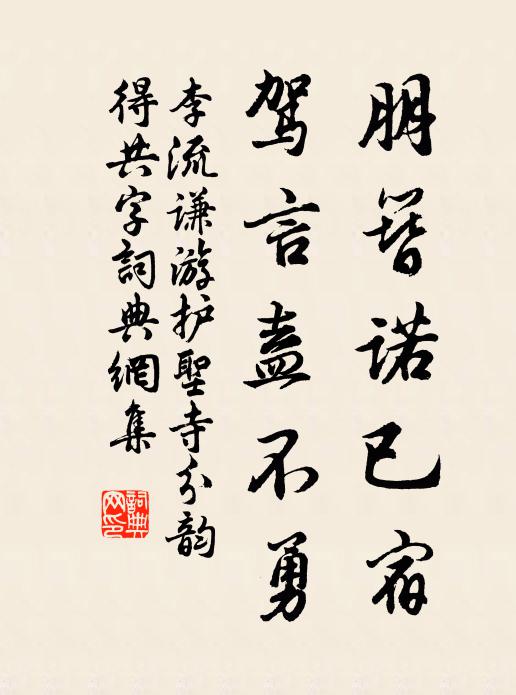 朋簪诺已宿
驾言盍不勇
李流谦游护聖寺分韵
得共字詞典網集
詞典
网印